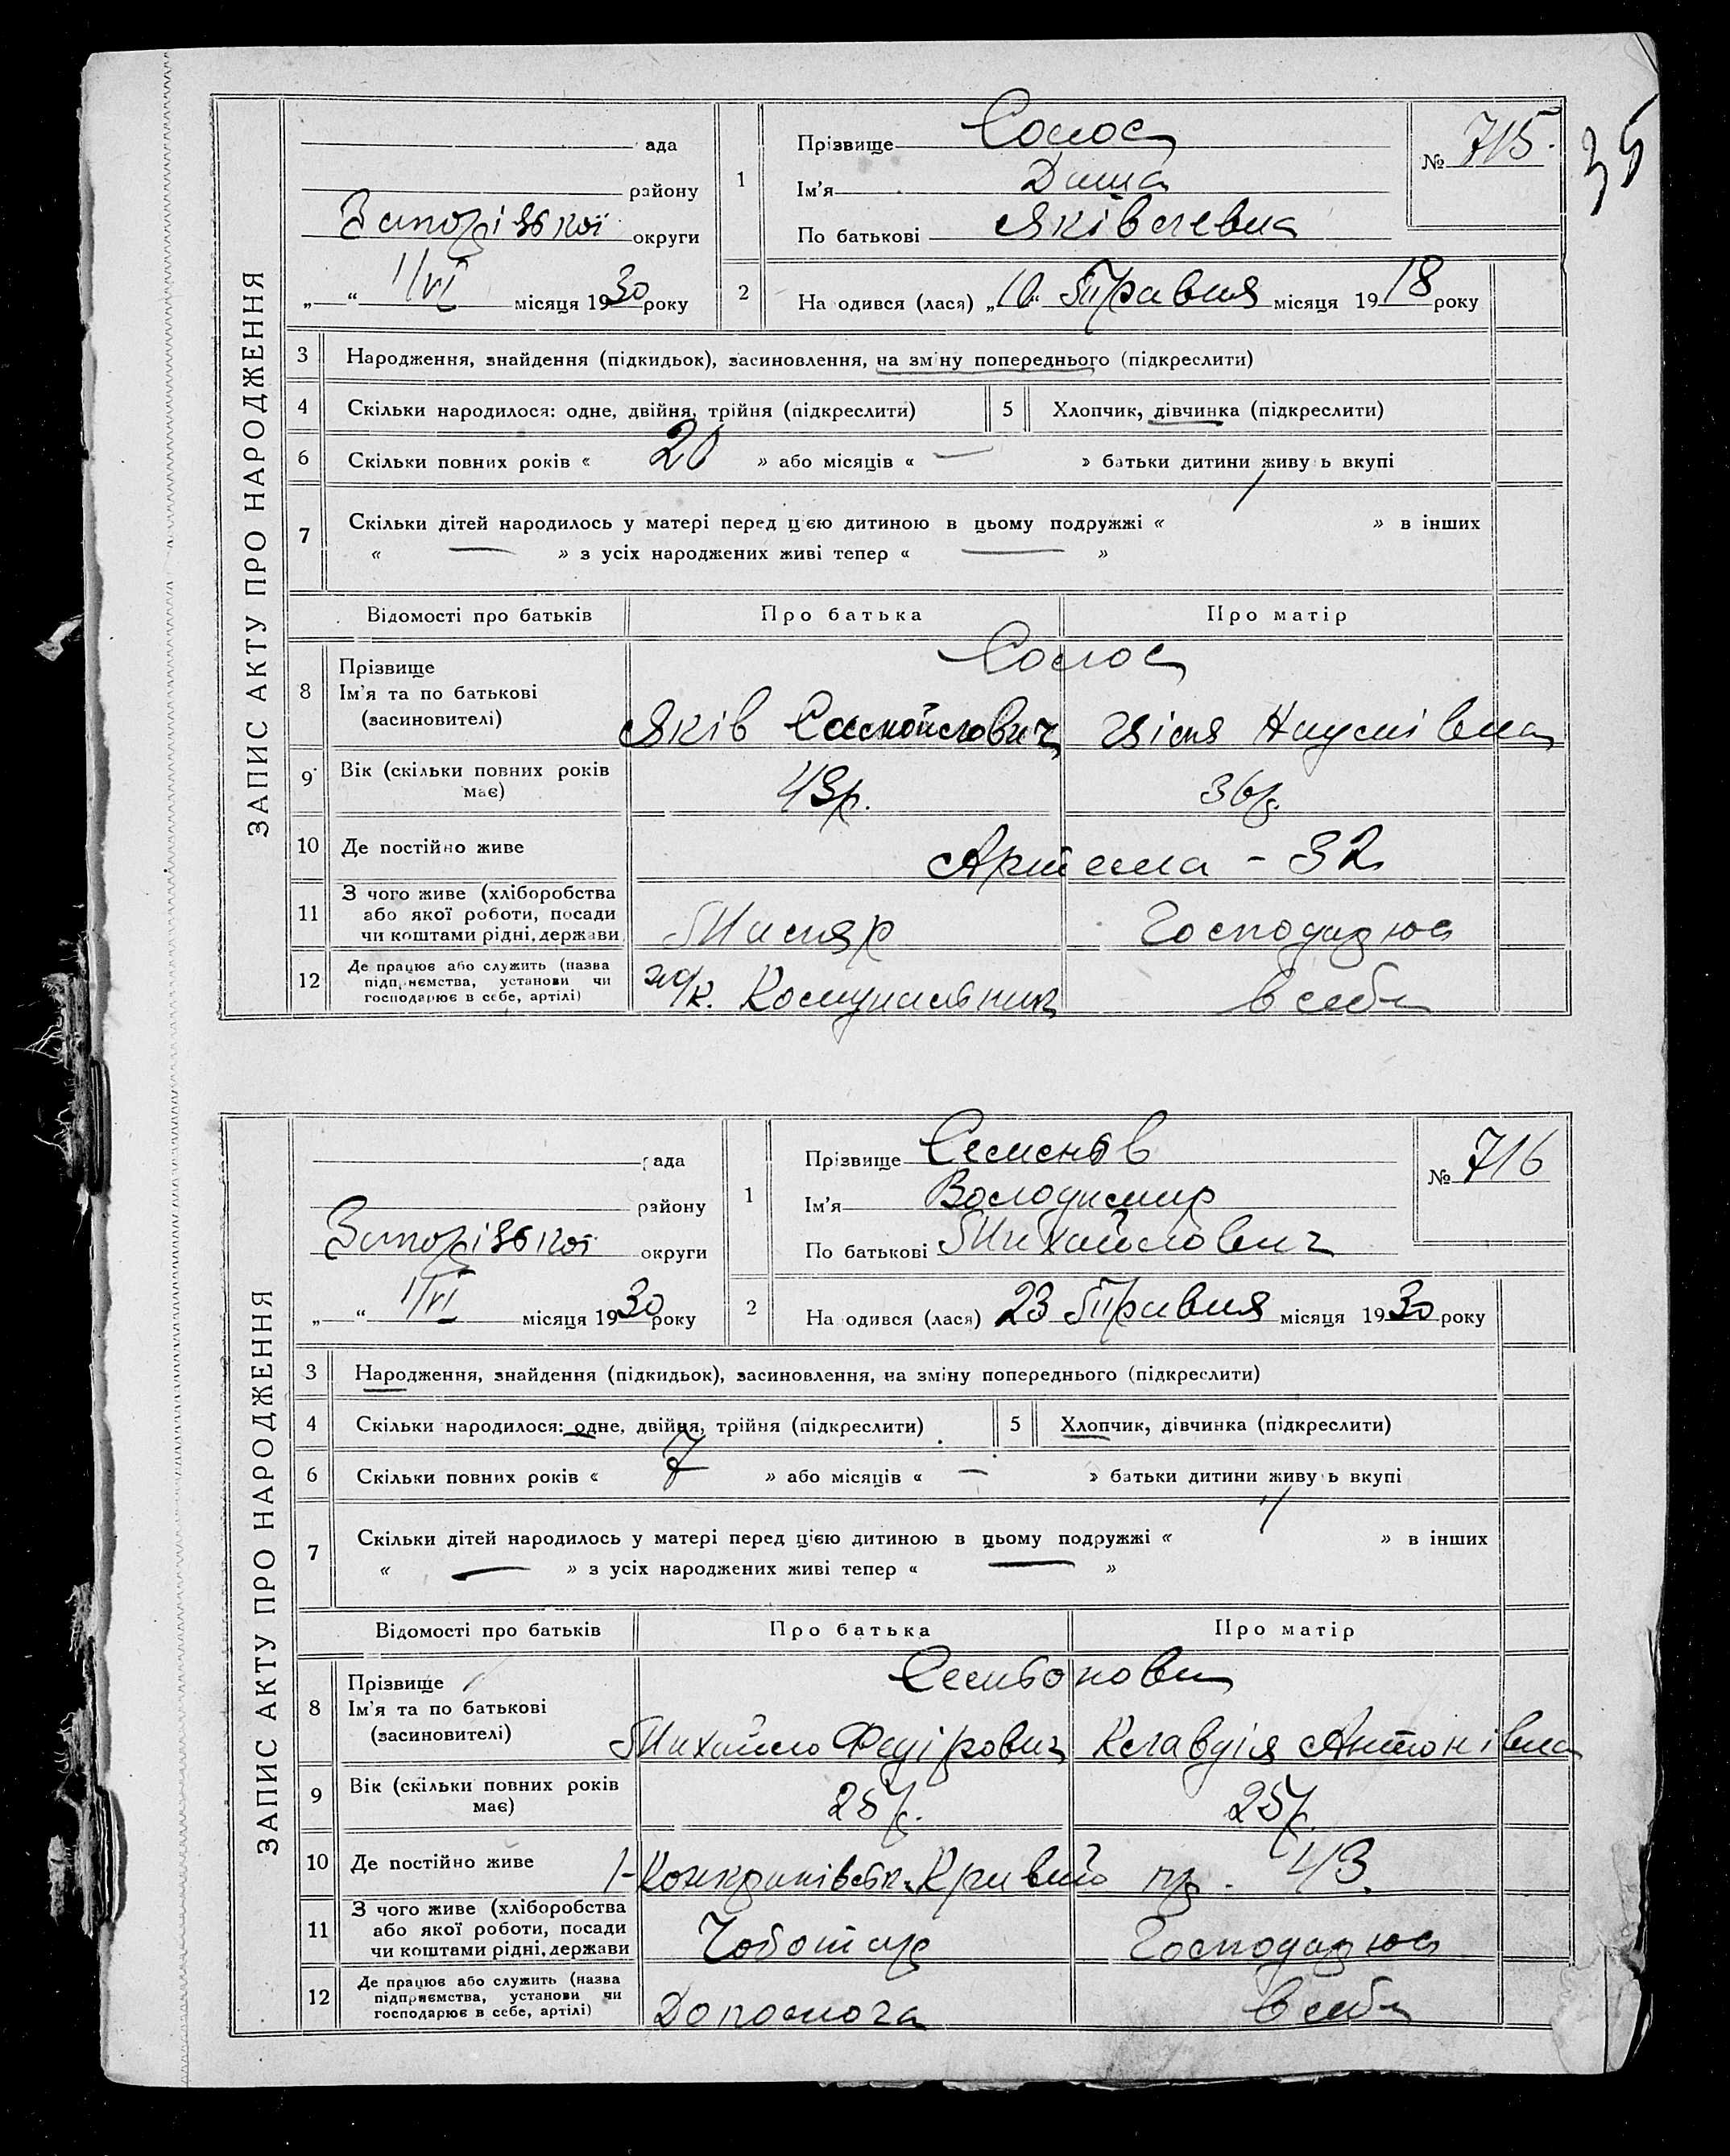 35
ЗАПИС АКТУ ПРО НАРОДЖЕННЯ
ада
району
Запорізької округи
„ “ 1/VI місяця 1930 року
1 Прізвище Солос
Ім'я Даша
По батькові Яківлевна
№ 715.
2 На одився (лася) „10“ Травня місяця 1918 року
3 Народження, знайдення (підкидьок), засиновлення, на зміну попереднього (підкреслити)
4 Скільки народилося: одне, двійня, трійня (підкреслити) 5 Хлопчик, дівчинка (підкреслити)
6 Скільки повних років « 20 » або місяців « — » батьки дитини живу ь вкупі
7 Скільки дітей народилось у матері перед цією дитиною в цьому подружжі « 1 » в інших
« — » з усіх народжених живі тепер « — »
Відомості про батьків Про батька Про матір
8 Прізвище Солос
Ім'я та по батькові
(засиновителі) Яків Самойлович Наумівна
9 Вік (скільки повних років
має) 43р. 36р.
10 Де постійно живе Артема - 32
11 З чого живе (хліборобства
або якої роботи, посади
чи коштами рідні, держави Маляр Господарює
12 Де працює або служить (назва
підприємства, установи чи
господарює в себе, артілі) Комунальник в себе
ЗАПИС АКТУ ПРО НАРОДЖЕННЯ
рада
району
Запорізької округи
„ “ 1/VI місяця 1930 року
1 Прізвище Семенов
Ім'я Володимир
По батькові Михайлович
№ 716
2 На одився (лася) 23 Травня місяця 1930 року
3 Народження, знайдення (підкидьок), засиновлення, на зміну попереднього (підкреслити)
4 Скільки народилося: одне, двійня, трійня (підкреслити) 5 Хлопчик, дівчинка (підкреслити)
6 Скільки повних років « 7 » або місяців « — » батьки дитини живу ь вкупі
7 Скільки дітей народилось у матері перед цією дитиною в цьому подружжі « 1 » в інших
« — » з усіх народжених живі тепер « — »
Відомості про батьків Про батька Про матір
8 Прізвище
Ім'я та по батькові
(засиновителі) Михайло Федірович Клавдія Антонівна
9 Вік (скільки повних років
має) 25р. 25р.
10 Де постійно живе Кривий пр. 43.
11 З чого живе (хліборобства
або якої роботи, посади
чи коштами рідні, держави Чоботар Господарює
12 Де працює або служить (назва
підприємства, установи чи
господарює в себе, артілі) Допомога в себе